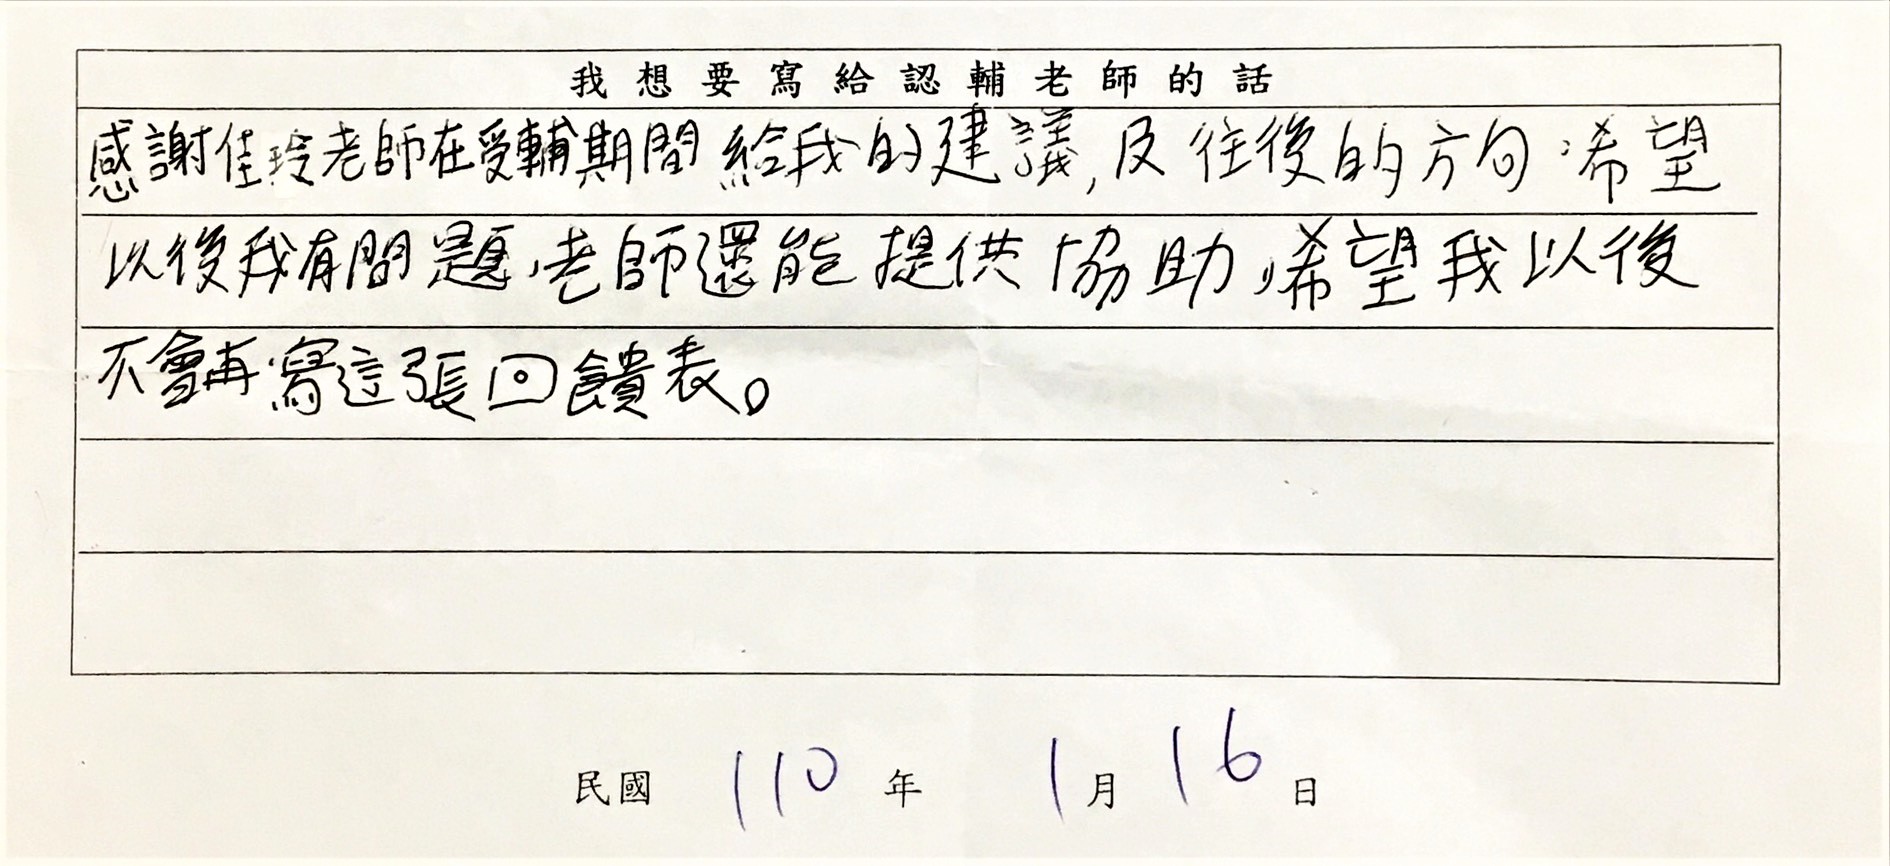 我想要寫給認輔老師的話
感謝佳玲老師在受輔期間給我的建議,及往後的方向,希望
以後我有問題,老師還能提供協助,希望我以後
不會再寫這張回饋表。
民國 110 年 1 月 16 日